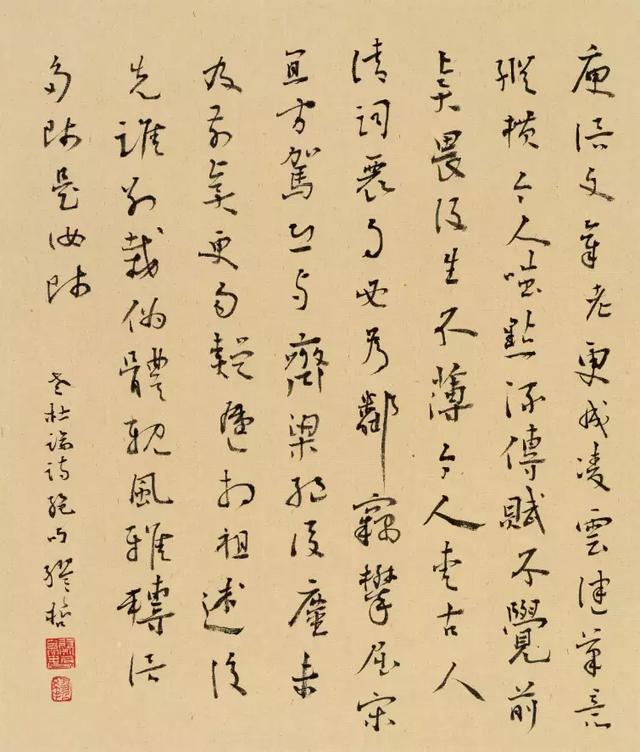 庾信文章老更成凌雲健筆意
縱横今人嗤點流傳賦不覺前
賢畏後生不薄今人愛古人
清詞麗句必為鄰竊攀屈宋
宜方駕恐与齊梁作後塵未
及前賢更勿疑遞相祖述復
先誰別裁偽體親風雅轉益
多師是汝師
老杜論詩絕句